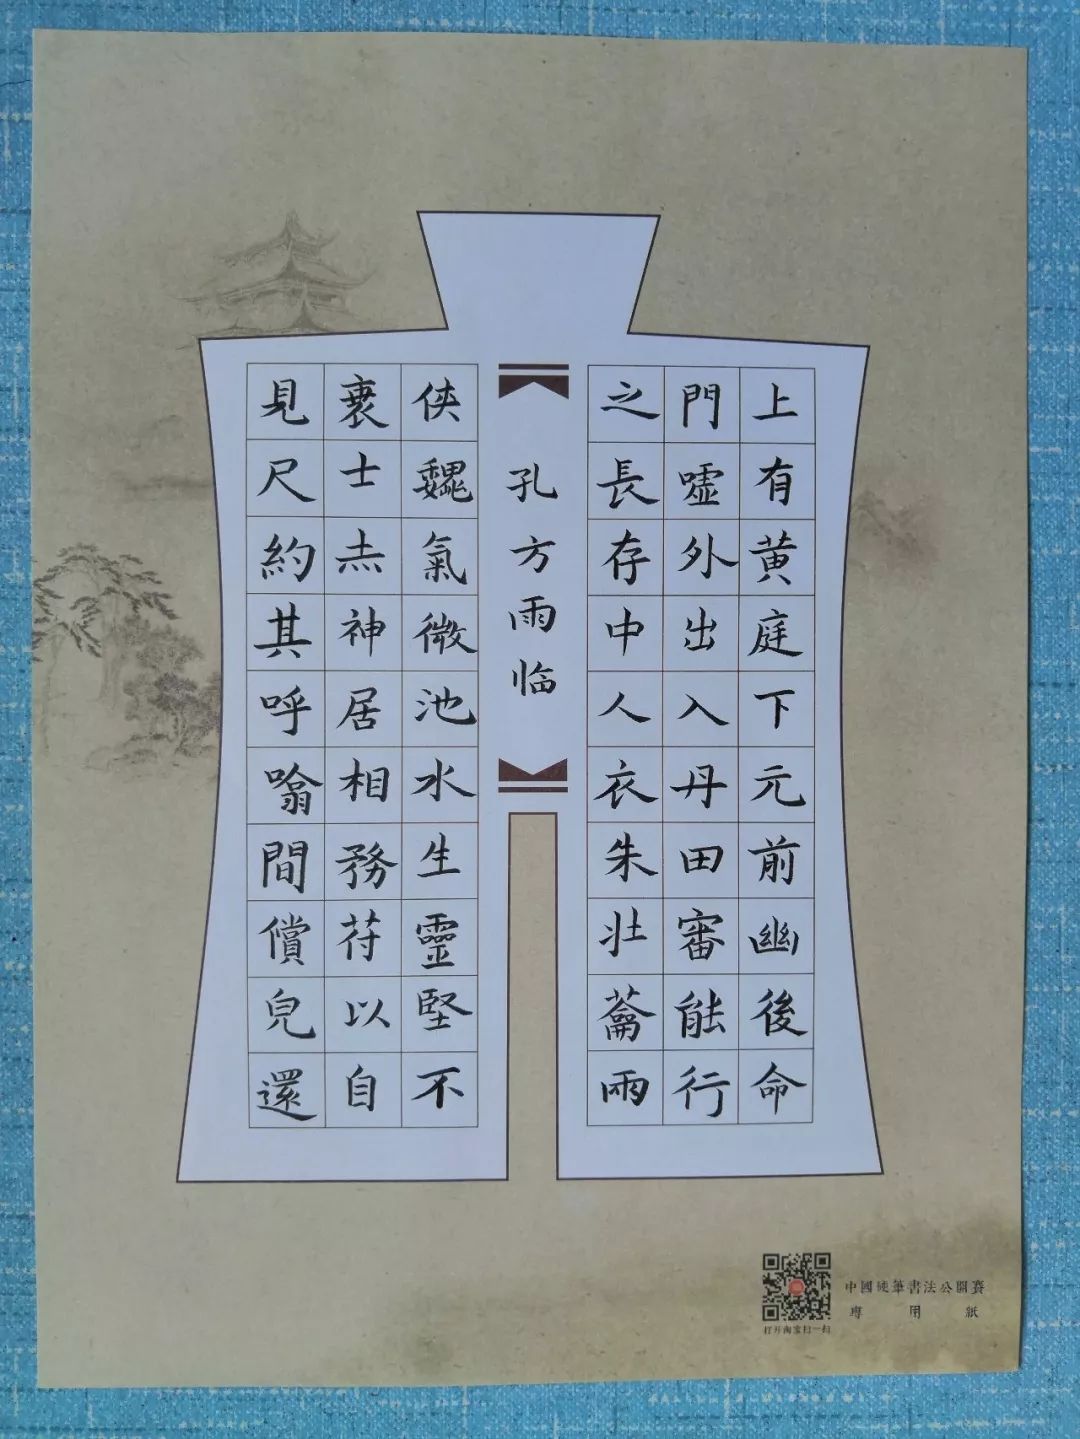 上有黄庭下元前幽後命
門嘘外出入丹田審能行
之長存中人衣朱壮蘥雨
孔方雨临
侠巍氣微池水生靈堅不
衺士㶳神居相務苻以自
見尺約其呼噏間償皃還
中國硬筆書法公開賽
專用紙
打开淘宝扫一扫